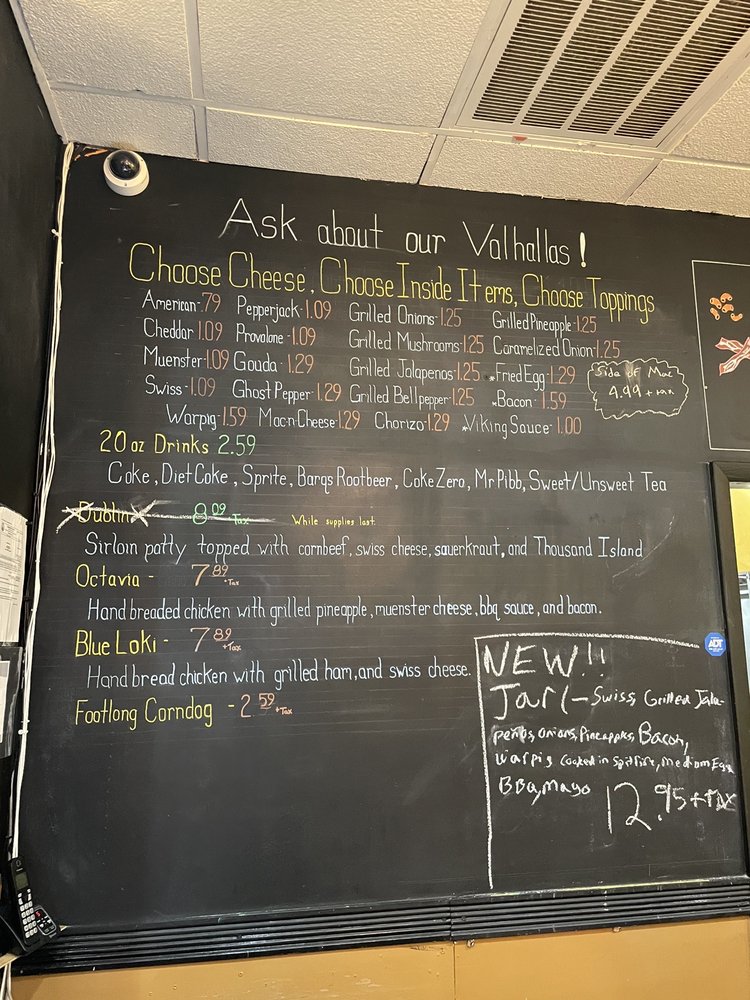 Ask about our Valhallas!
Choose Cheese, Choose Inside Items, Choose Toppings
American-.79 Pepperjack-1.09 Grilled Onions-1.25 Grilled Pineapple-1.25
Cheddar 1.09 Provolone-1.09 Grilled Mushrooms-1.25 Caramelized Onion 1.25
Muenster-1.09 Gouda-1.29 Grilled Jalapenos-1.25 *Fried Egg-1.29
Swiss-1.09 Ghost Pepper-1.29 Grilled Bellpepper-1.25 *Bacon-1.59
Warpig-1.59 Mac-n-Cheese-1.29 Chorizo-1.29 *Viking Sauce-1.00
Side of Mac
4.99 + tax
20 oz Drinks 2.59
Coke, Diet Coke, Sprite, Barqs Rootbeer, Coke Zero, Mr Pibb, Sweet/Unsweet Tea
Dublin 8.09 Tax While supplies last.
Sirloin patty topped with cornbeef, swiss cheese, sauerkraut, and Thousand Island
Octavia - 7.89 +Tax
Hand breaded chicken with grilled pineapple, muenster cheese, bbq sauce, and bacon.
Blue Loki - 7.89 +Tax
Hand bread chicken with grilled ham, and swiss cheese.
Footlong Corndog - 2.59 +Tax
NEW!!
Jarl - Swiss, Grilled Jala-
peños, onions, Pineapples, Bacon,
Warpig cooked in spitfire, medium Egg
BBQ, mayo 12.95 + TAX
ADT